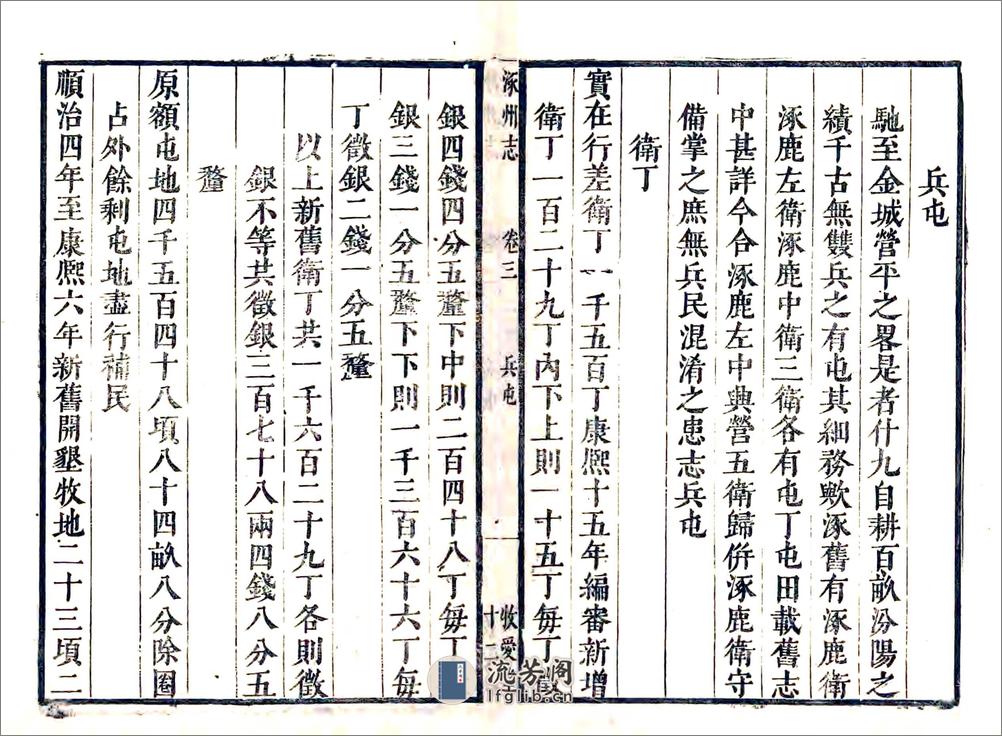 兵屯
馳至金城營平之畧是者什九自耕百畝汾陽之
績千古無雙兵之有屯其細務歟涿舊有涿鹿衛
涿鹿左衛涿鹿中衛三衛各有屯丁屯田載舊志
中甚詳今合涿鹿左中典營五衛歸併涿鹿衛守
備掌之庶無兵民混淆之患志兵屯
衛丁
實在行差衛丁一千五百丁康熈十五年編審新增
衛丁一百二十九丁內下上則一十五丁每丁
涿州志 卷三 兵屯 十二 牧愛
銀四錢四分五釐下中則二百四十八丁每丁
銀三錢一分五釐下下則一千三百六十六丁每
丁徵銀二錢一分五釐
以上新舊衛丁共一千六百二十九丁各則徵
銀不等共徵銀三百七十八兩四錢八分五
釐
原額屯地四千五百四十八頃八十四畝八分除圈
占外餘剩屯地盡行補民
順治四年至康熈六年新舊開墾牧地二十三頃二
流芳閣
lfglib.cn